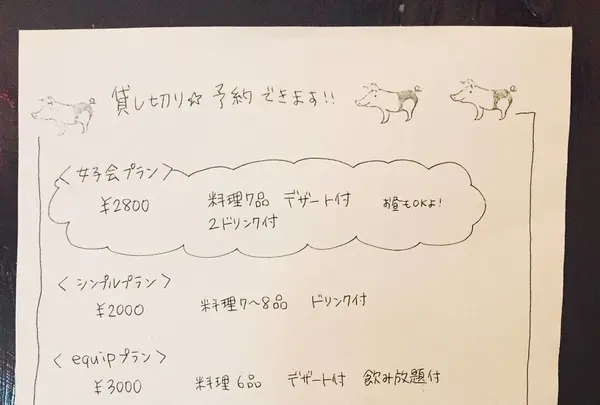 貸し切り☆予約できます!!
<女子会プラン>
¥2800 料理7品 デザート付 お昼もOKよ!
2ドリンク付
<シンプルプラン>
¥2000 料理7~8品 ドリンク付
<equipプラン>
¥3000 料理6品 デザート付 飲み放題付